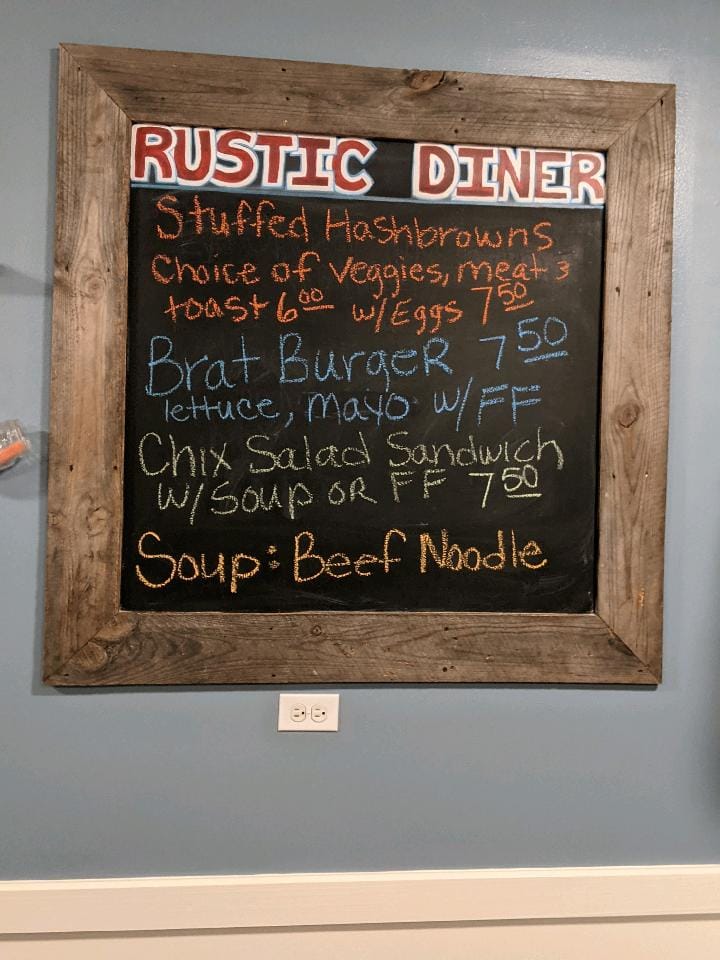 RUSTIC DINER
Stuffed Hashbrowns
Choice of Veggies, meat &
toast 600 w/Eggs 750
Brat BurgeR 750
lettuce, mayo w/FF
Chix Salad Sandwich
w/Soup OR FF 750
Soup: Beef Noodle